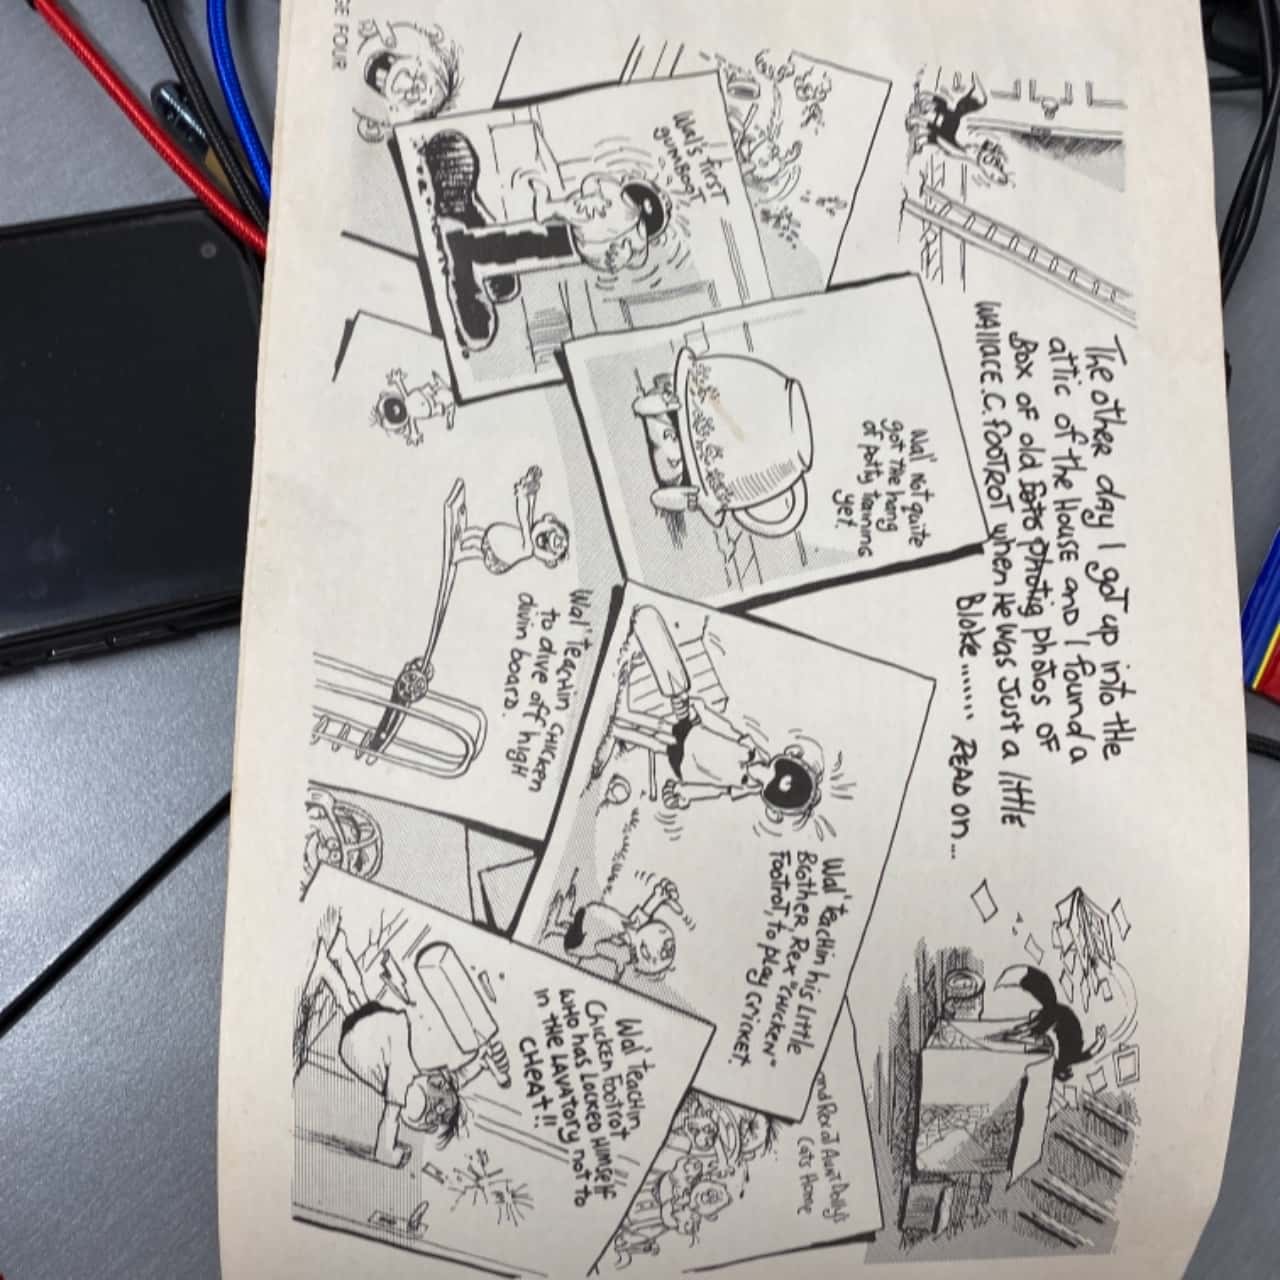 The other day I got up into the
attic of the House and I found a
Box of old photos of
WALLACE.C.FOOTROT when He Was Just a little
Bloke....... READ on...
Wal's first
GUMBOOT
Wal' not quite
got the hang
of potty training
yet.
Wal' teachin his Little
Brother, Rex "CHICKEN"
Footrot, to play cricket.
Wal' teachin CHICKEN
to dive off high
divin board.
Wal' teachin
Chicken Footrot
WHO has Locked Himself
in THE LAVATORY not to
CHEAT!!
and Rex'd Aunt Dolly's
Cats Home
GE FOUR